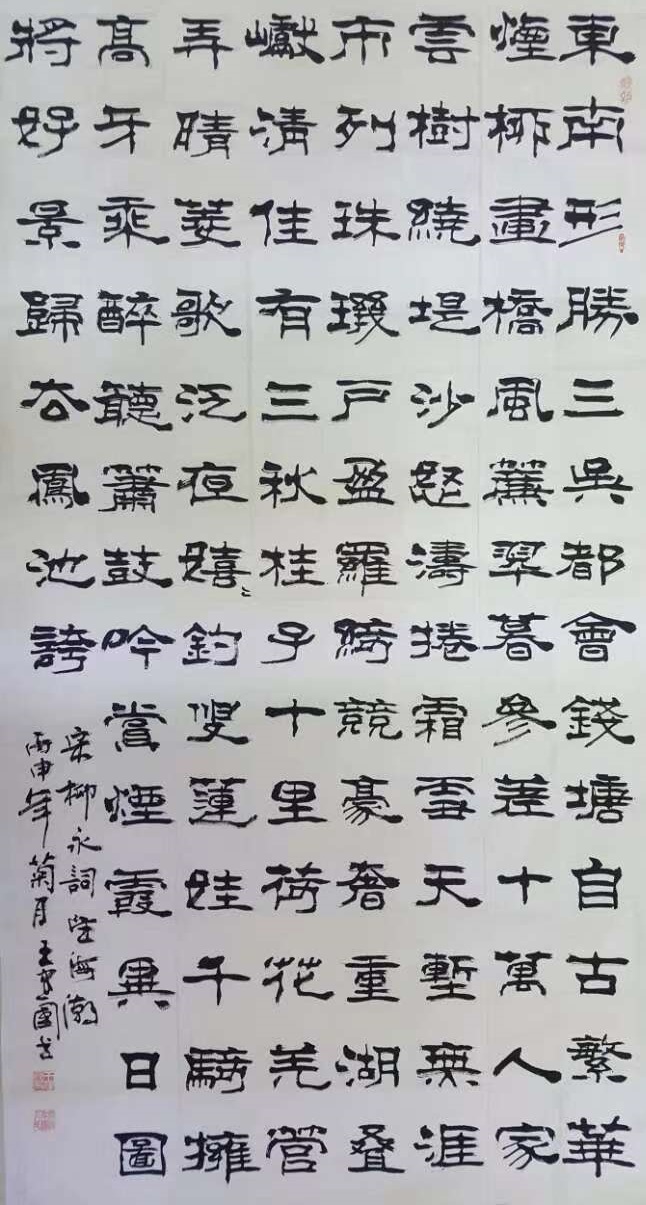 東南形勝三吳都會錢塘自古繁華
煙柳畫橋風簾翠暮參差十萬人家
雲樹繞堤沙怒濤捲霜雪天塹無涯
市列珠璣戶盈羅綺競豪奢重湖叠
巘清佳有三秋桂子十里荷花羌管
弄晴菱歌泛夜嬉〻釣叟蓮娃千騎擁
高牙乘醉聽簫鼓吟賞煙霞異日圖
將好景歸去鳳池誇
宋柳永詞望海潮
丙申年菊月王國書